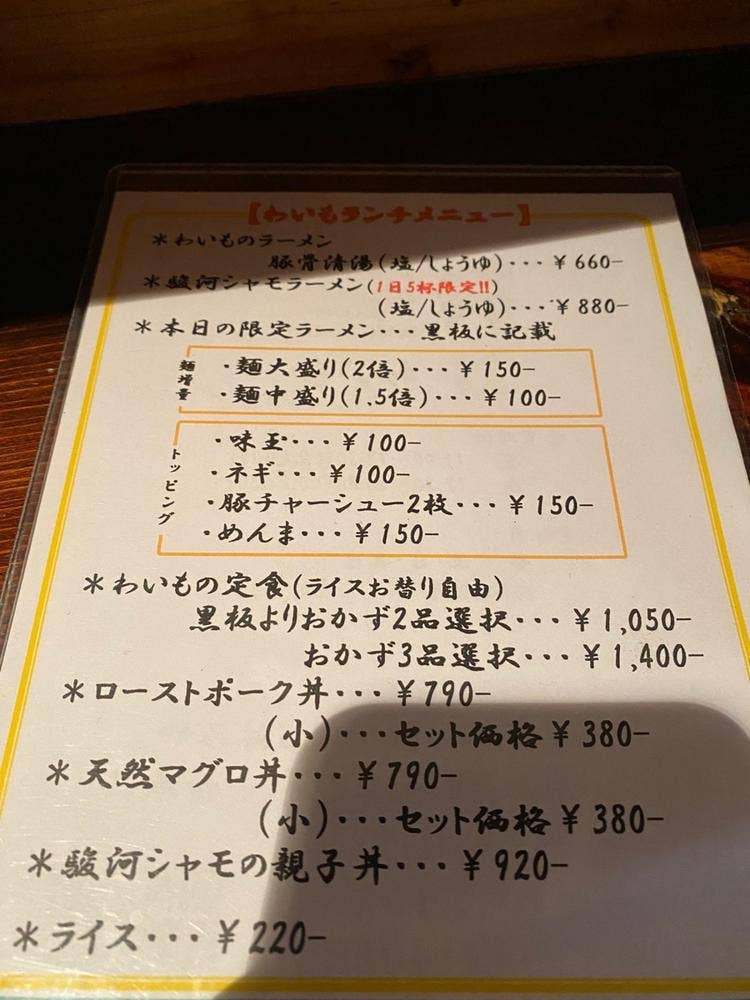 【わいもランチメニュー】
＊わいものラーメン
豚骨清湯(塩/しょうゆ)・・・¥660-
＊駿河シャモラーメン(1日5杯限定!!)
(塩/しょうゆ)・・・¥880-
＊本日の限定ラーメン・・・黒板に記載
麺増量
・麺大盛り(2倍)・・・¥150-
・麺中盛り(1.5倍)・・・¥100-
トッピング
・味玉・・・¥100-
・ネギ・・・¥100-
・豚チャーシュー2枚・・・¥150-
・めんま・・・¥150-
＊わいもの定食(ライスお替り自由)
黒板よりおかず2品選択・・・¥1,050-
おかず3品選択・・・¥1,400-
＊ローストポーク丼・・・¥790-
(小)・・・セット価格¥380-
＊天然マグロ丼・・・¥790-
(小)・・・セット価格¥380-
＊駿河シャモの親子丼・・・¥920-
＊ライス・・・¥220-